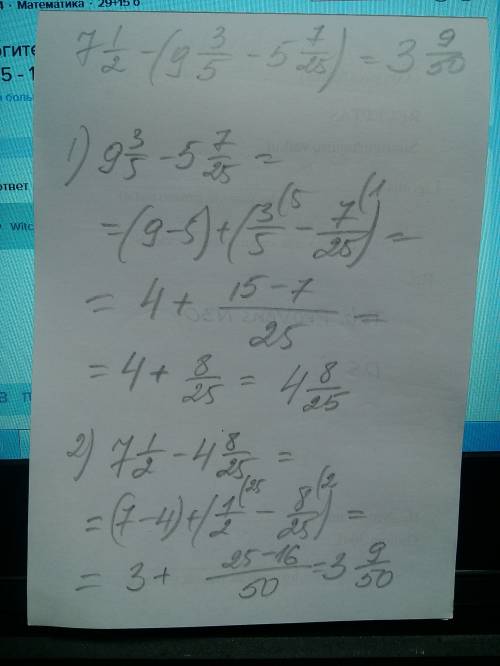 1 · Математика · 29+15 б
огите
5 - 1
ответ
Witc
7 1/2 - (9 3/5 - 5 7/25) = 3 9/50
1) 9 3/5 - 5 7/25 =
= (9-5) + (3/5 (5 - 7/25 (1) =
= 4 + (15-7)/25 =
= 4 + 8/25 = 4 8/25
2) 7 1/2 - 4 8/25 =
= (7-4) + (1/2 (25 - 8/25 (2) =
= 3 + (25-16)/50 = 3 9/50